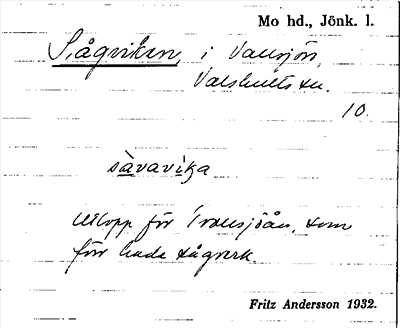 Mo hd., Jönk. l.
Sågviken, i Vallsjön,
Valshults sn.
10.
såvavika
Utlopp för Transjöån, som
förr hade sågverk.
Fritz Andersson 1932.